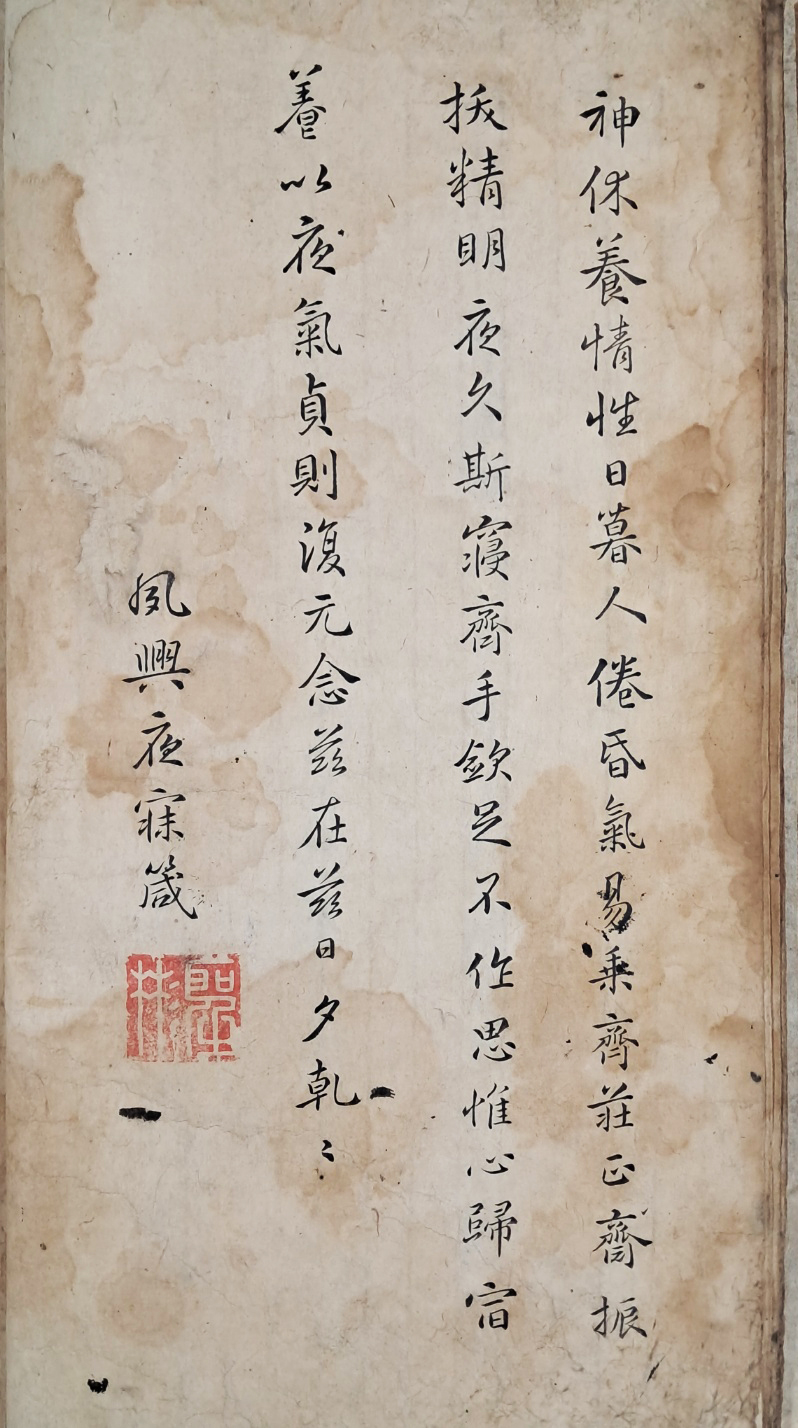 神休養情性日暮人倦昏氣易乗齊莊正齊振
拔精明夜久斯寢齊手歛足不作思惟心歸宿
養以夜氣貞則復元念茲在茲日夕乹〻
夙興夜寐箴